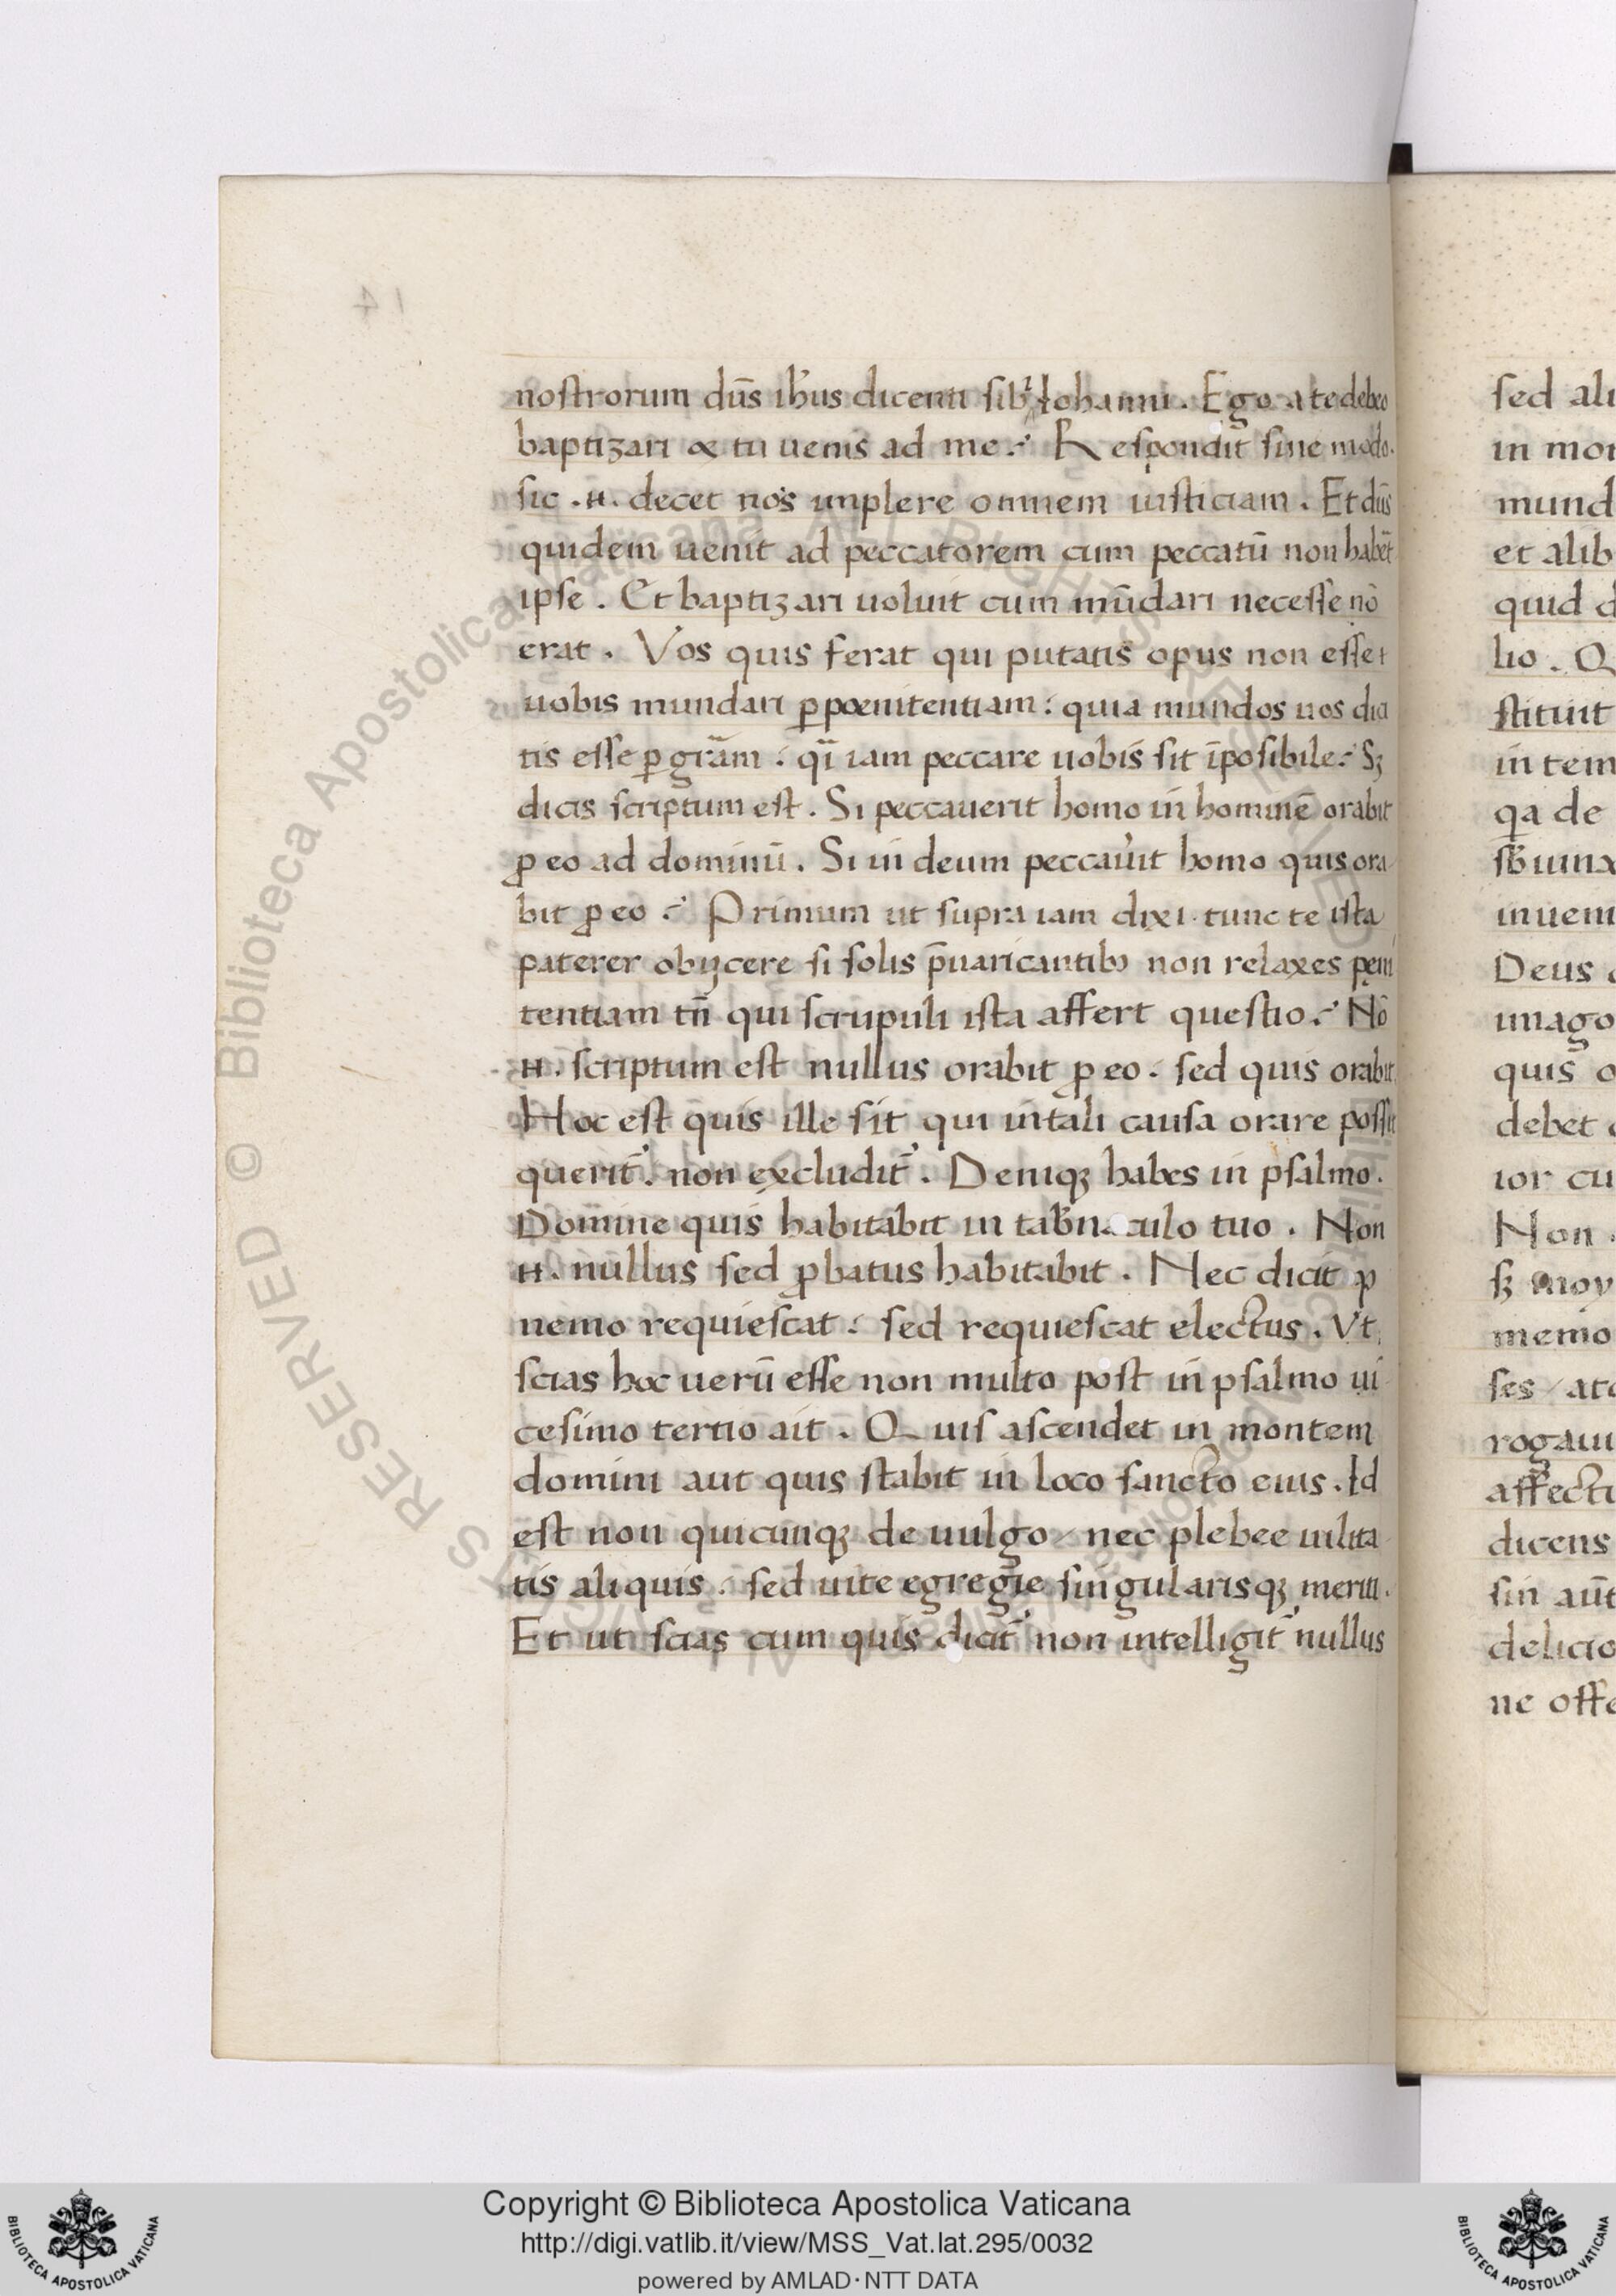 nostrorum dñs ih̅us dicenti sibi Iohanni. Ego a te debeo
baptizari & tu uenis ad me? Respondit sine modo.
sic .n. decet nos implere omnem iusticiam. Et dñs
quidem uenit ad peccatorem cum peccatū non habet̄
ipse. Et baptizari uoluit cum mūdari necesse nō
erat. Vos quis ferat qui putatis opus non esset
uobis mundari ꝑ poenitentiam: quia mundos uos dici
tis esse ꝑ gr̄am: qi̅ iam peccare uobis sit īposibile? Sꝫ
dicis scriptum est. Si peccauerit homo in hominē orabit
ꝓ eo ad dominū. Si in deum peccau'it homo quis ora
bit ꝓ eo? Primum ut supra iam dixi tunc te ista
paterer obijcere si solis p̄uaricantibꝰ non relaxes peni
tentiam tn̄ qui scrupuli ista affert questio? Nō
.n. scriptum est nullus orabit ꝓ eo: sed quis orabit
Hoc est quis ille sit qui in tali causa orare possit
querit̄. non excludit̄. Deniqꝫ habes in psalmo.
Domine quis habitabit in tab̄naculo tuo. Non
.n. nullus sed ꝓbatus habitabit. Nec dicit ꝙ
nemo requiescat: sed requiescat electus. Vt
scias hoc uerū esse non multo post in psalmo ui
cesimo tertio ait. Quis ascendet in montem
domini aut quis stabit in loco sancto eius. Id
est non quicunqꝫ de uulgo / nec plebee uilita
tis aliquis: sed uite egregie singularisqꝫ meriti.
Et ut scias cum quis dicit̄ non intelligit̄ nullus
sed ali
in mon
mund
et alib
quid d
lio. Q
stituit
in tem
qa de
sb̄iunx
inueni
Deus
imago
quis o
debet
ior cu
Non
sꝫ moy
memo
ses / at
rogaui
affecti
dicens
sin aūt
delicio
ne offe
Copyright © Biblioteca Apostolica Vaticana
http://digi.vatlib.it/view/MSS_Vat.lat.295/0032
powered by AMLAD·NTT DATA
BIBLIOTECA APOSTOLICA VATICANA
BIBLIOTECA APOSTOLICA VATICANA